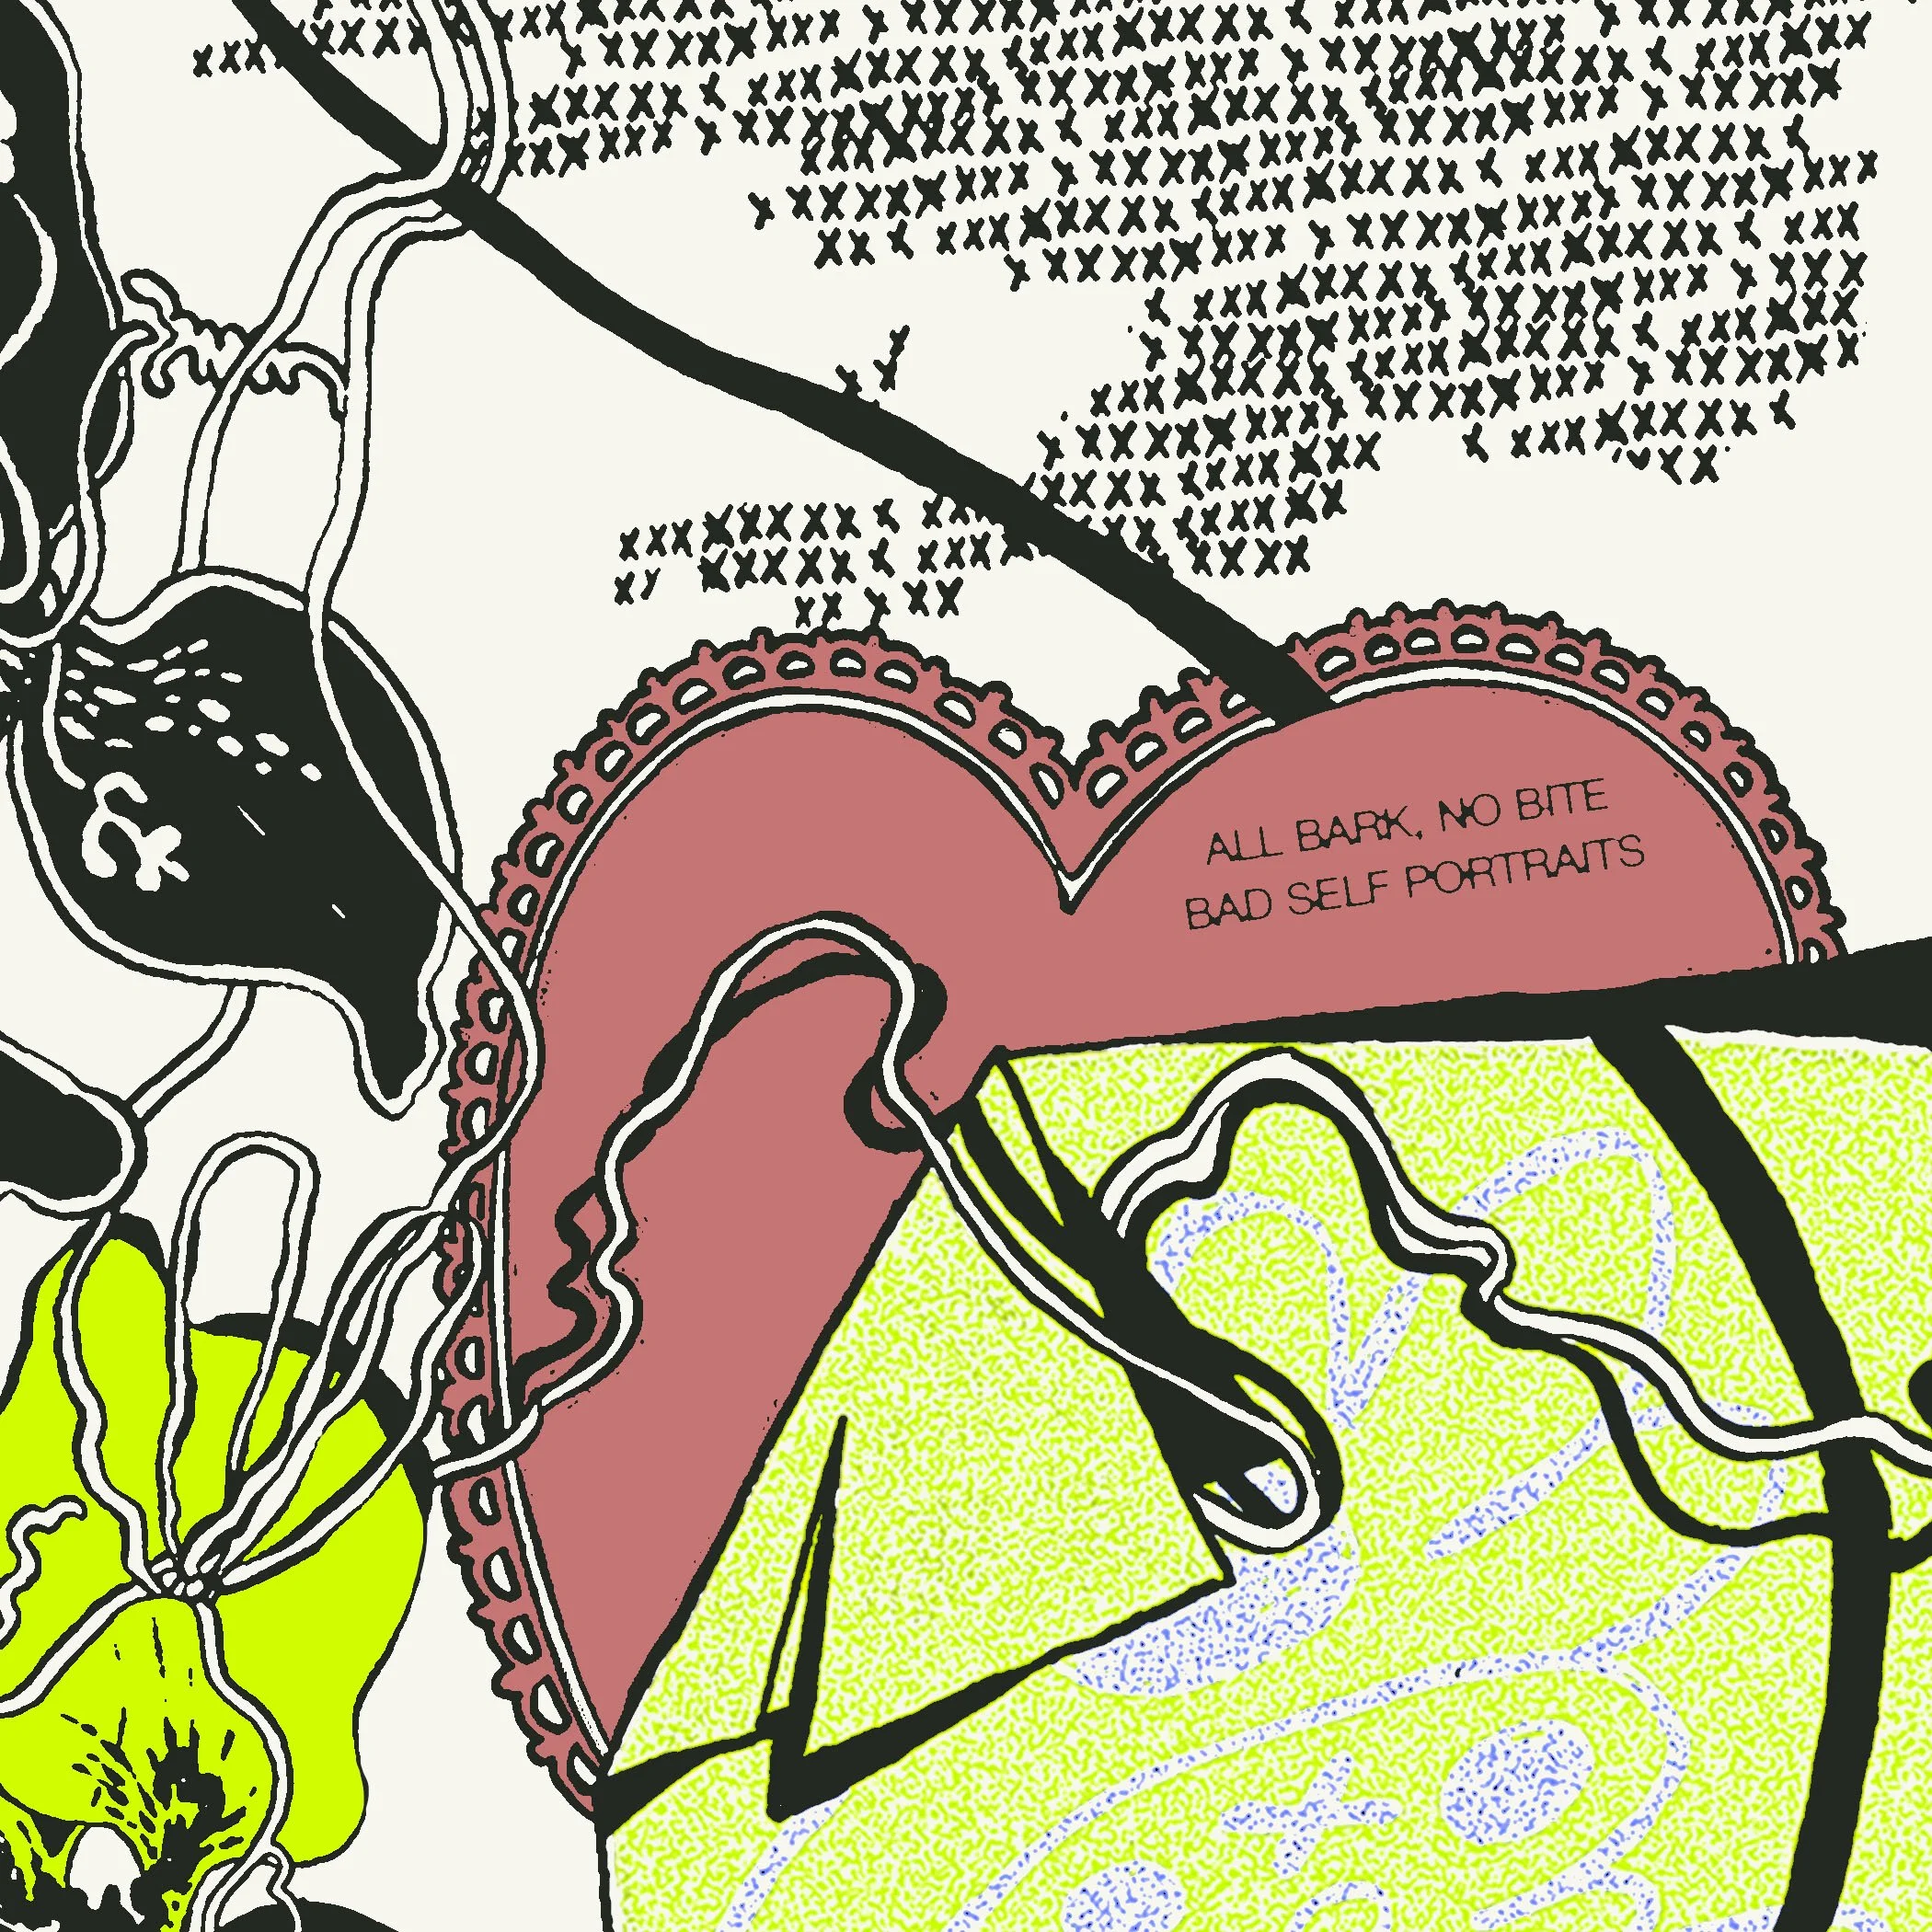 ALL BARK, NO BITE
BAD SELF PORTRAITS